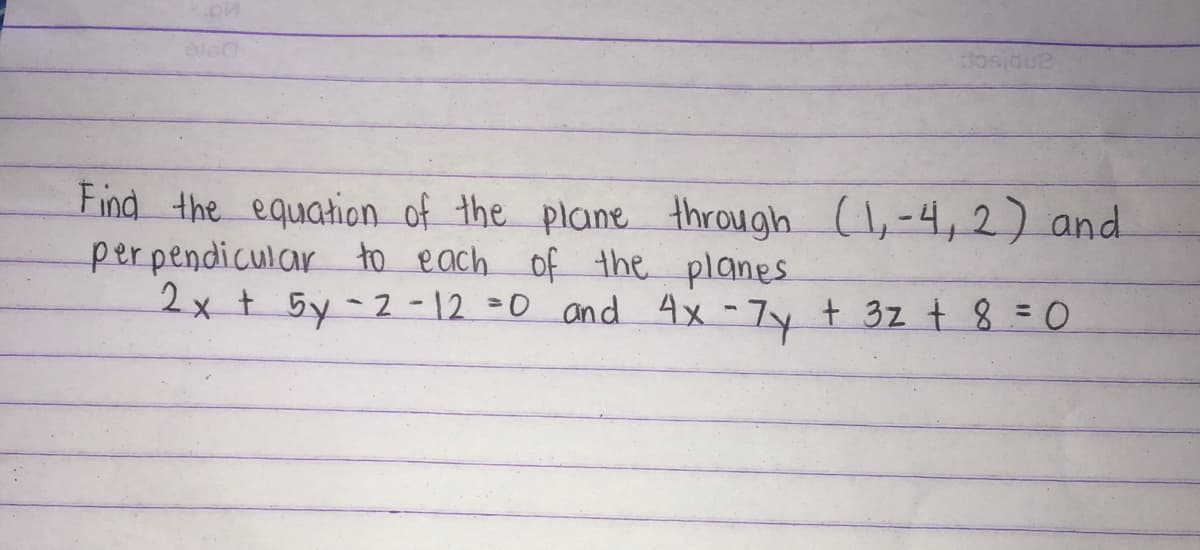 Find the equation of the plane through (1,-4, 2) and
perpendicular to each of the planes
2x + 5y - z - 12 = 0 and 4x - 7y + 3z + 8 = 0